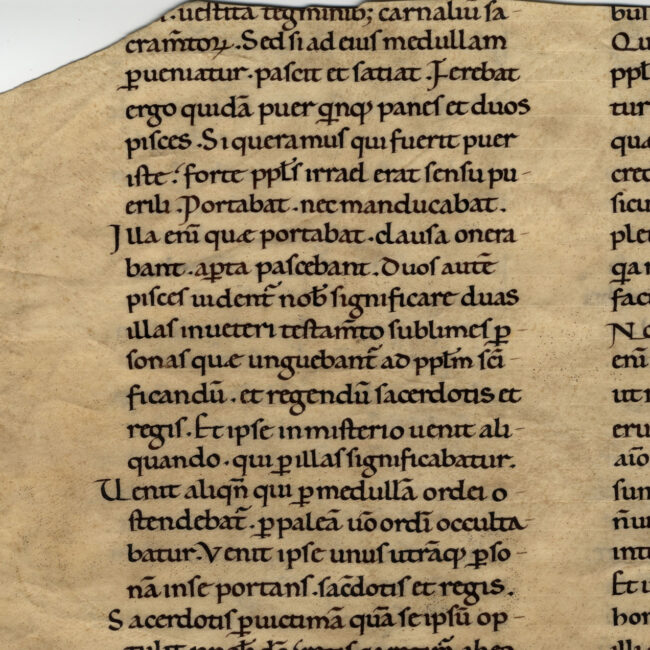 uestita tegminib; carnaliū sa
cram̄toꝝ. Sed si ad eius medullam
ꝑueniatur. pascit et satiat. Ferebat
ergo quidā puer qinqꝫ panes et duos
pisces. Si queramus qui fuerit puer
iste. forte ppl̄s israel erat sensu pu
erili. Portabat. nec manducabat.
Illa eni᷑ quæ portabat. clausa onera
bant. aꝑta pascebant. Duos autē
pisces uident᷑ nob̄ significare duas
illas in ueteri testam̄to sublimes ꝑ
sonas quæ unguebant᷑ ad ppl̄m sc̄i
ficandū. et regendū sacerdotis et
regis. Et ipse in misterio uenit ali
quando. qui ꝑ illas significabatur.
Uenit aliqn̄ qui ꝑ medullā ordei o
stendebat᷑. ꝑ paleā ūo ordī occulta
batur. Venit ipse unus utrāqꝫ ꝑso
nā in se portans. sac̄dotis et regis.
Sacerdotis ꝑ uictimā quā se ipsū op
bus
Qu
ppl
tur
quæ
cred
sicu
ple
qa
fac
No
enī
ut
eru
aīo
sun
n̄u
int
Et i
hon